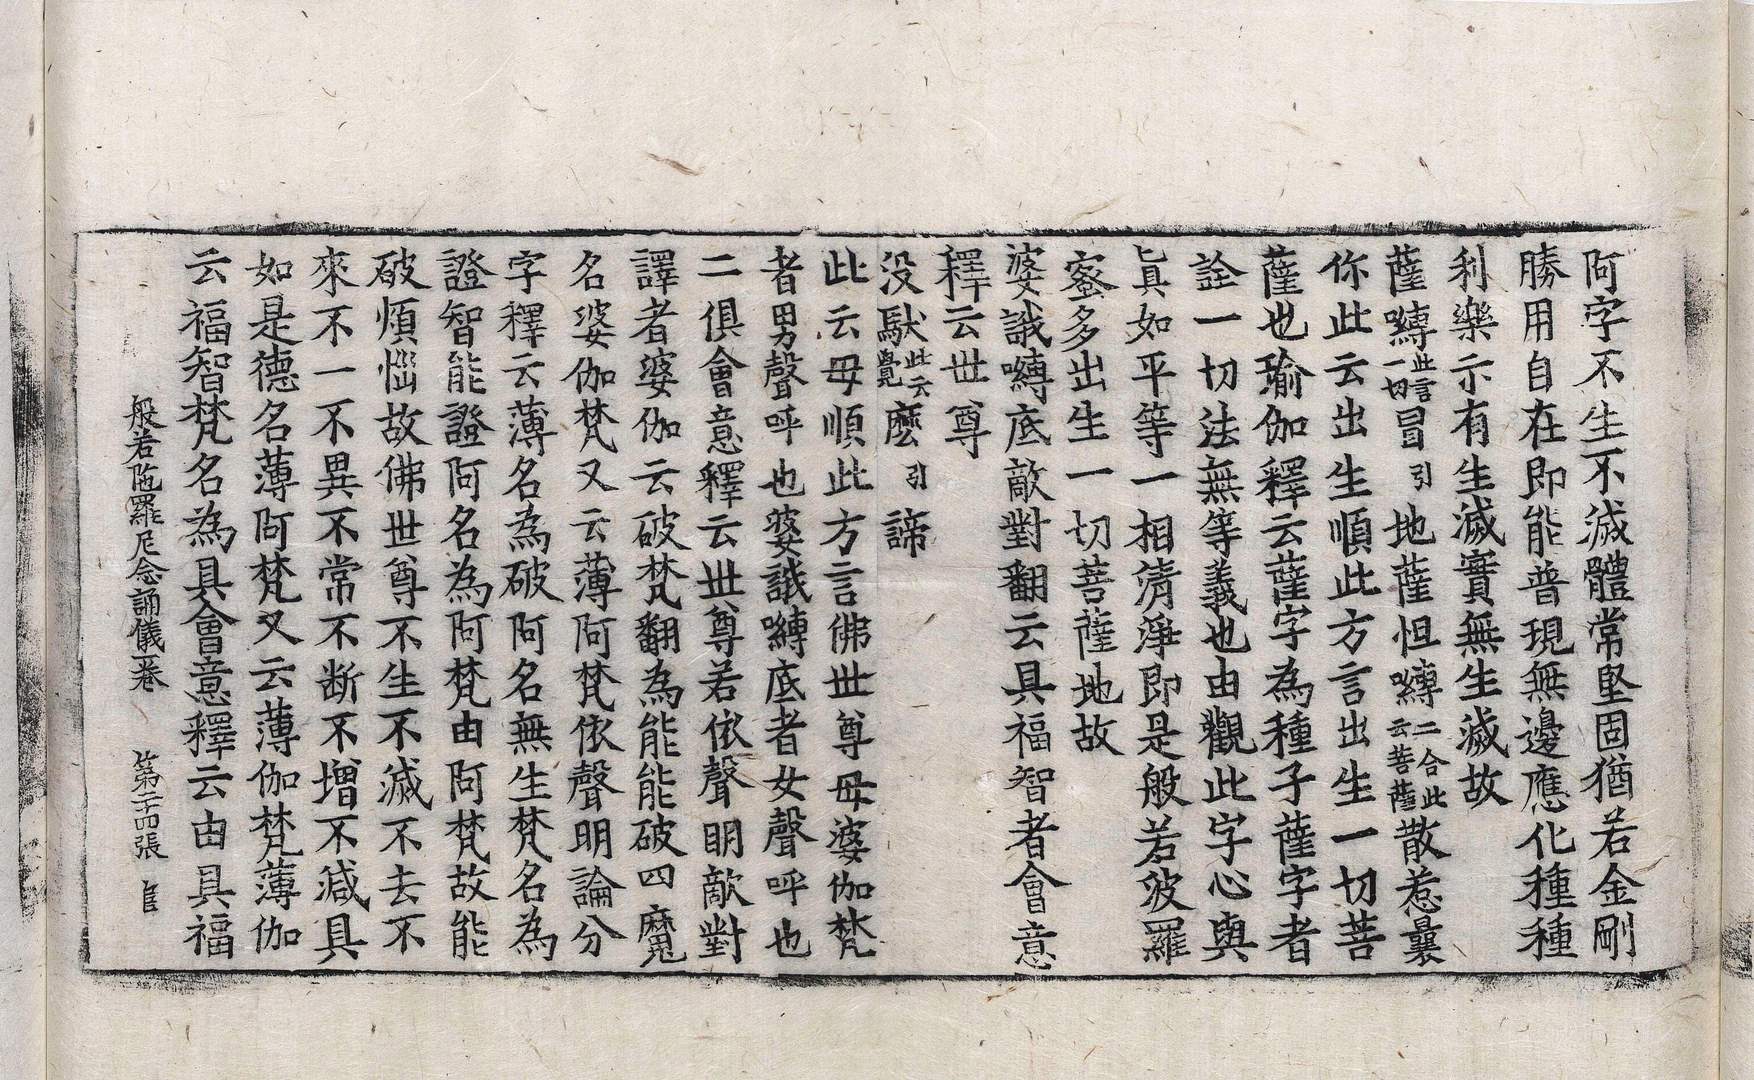 阿字不生不滅體常堅固猶若金剛
勝用自在即能普現無邊應化種種
利樂示有生滅實無生滅故
薩嚩此言一切冒引地薩怛嚩二合此云菩薩散惹曩
你此云出生順此方言出生一切菩
薩也瑜伽釋云薩字為種子薩字者
詮一切法無等義也由觀此字心與
真如平等一相清淨即是般若波羅
蜜多出生一切菩薩地故
婆誐嚩底敵對翻云具福智者會意
釋云世尊
没馱此云覺麼引諦
此云母順此方言佛世尊母婆伽梵
者男聲呼也婆誐嚩底者女聲呼也
二俱會意釋云世尊若依聲明敵對
譯者婆伽云破梵翻為能能破四魔
名婆伽梵又云薄阿梵依聲明論分
字釋云薄名為破阿名無生梵名為
證智能證阿名為阿梵由阿梵故能
破煩惱故佛世尊不生不滅不去不
來不一不異不常不断不增不減具
如是德名薄阿梵又云薄伽梵薄伽
云福智梵名為具會意釋云由具福
般若陁羅尼念誦儀一卷 第二十四張